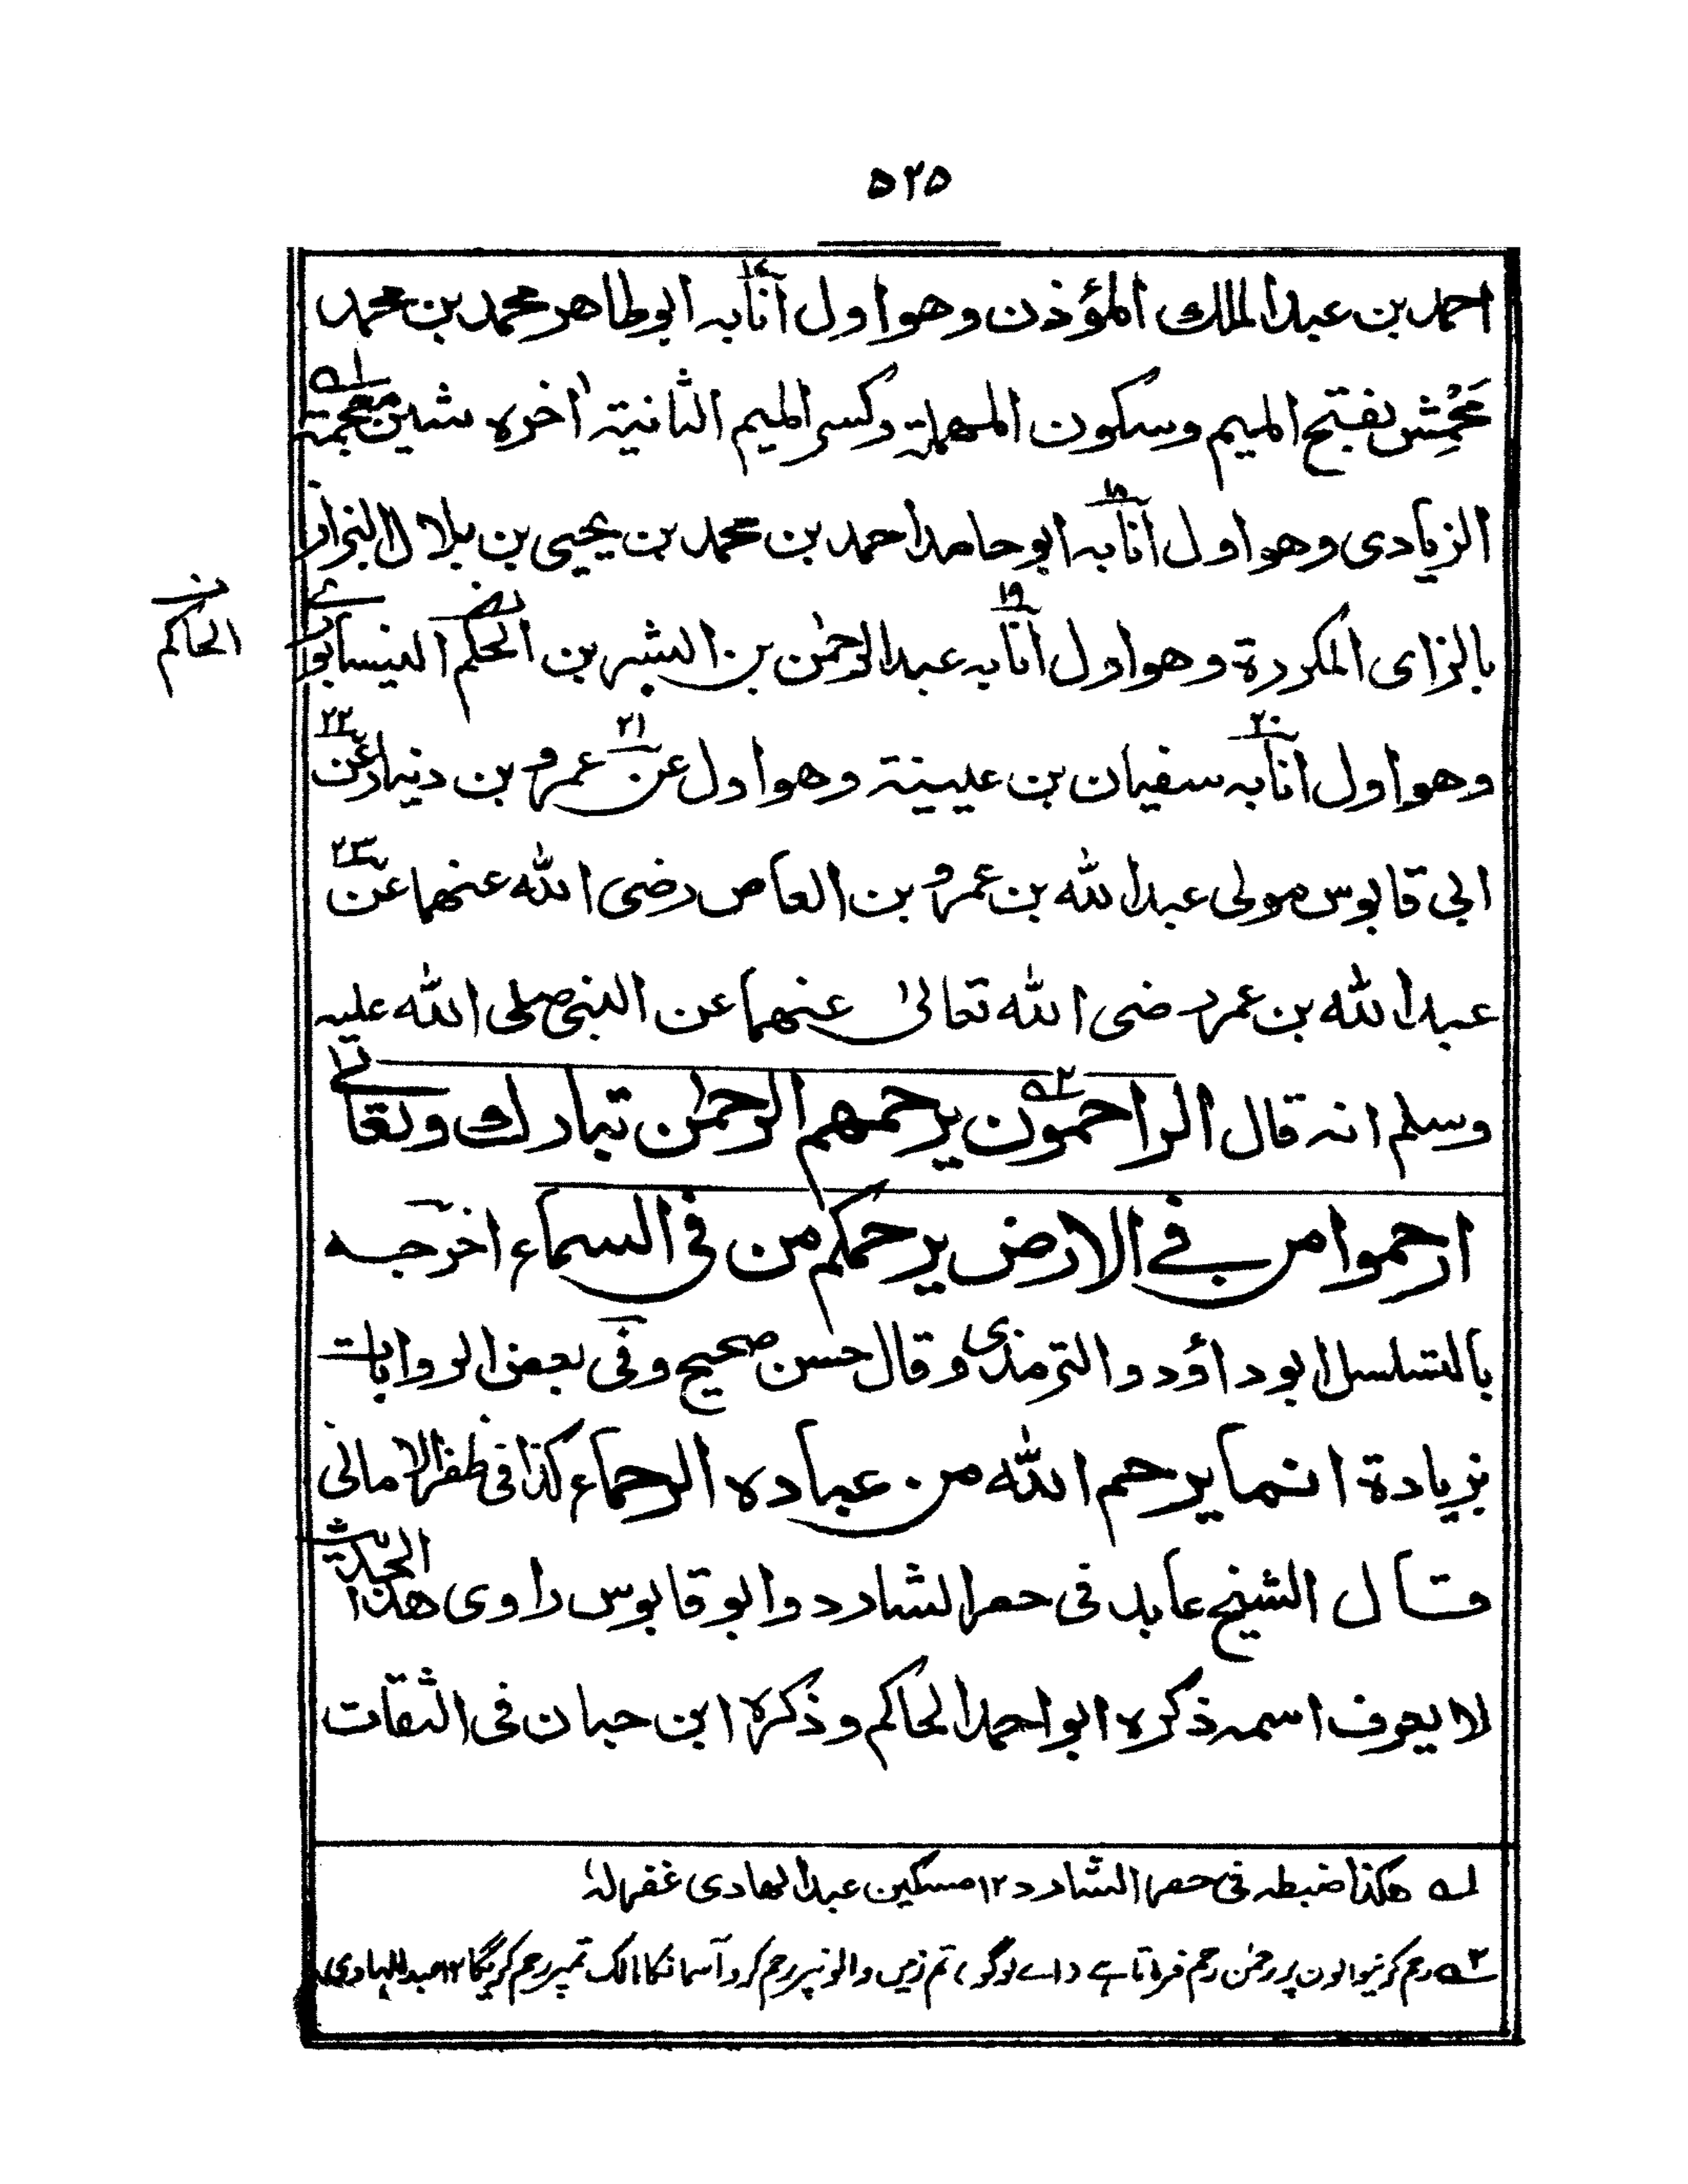 ۵۲۵
احمد بن عبد الملك المؤذن وهو اول انا به ابو طاهر محمد بن محمد
مَحْمِش بفتح الميم وسكون المهملة وكسر الميم الثانية اٰخره شين معجمة
الزيادى وهو اول انا به ابو حامد احمد بن محمد بن يحيى بن بلال البزاز
بالزاى المكررة وهو اول انا به عبد الرحمٰن بن البشر بن الحكم النيسابورے
الحاكم
وهو اول انا به سفيان بن عيينة وهو اول عن عمرو بن دينار عن
ابى قابوس مولى عبد الله بن عمرو بن العاص رضى الله عنهما عن
عبد الله بن عمرو رضى الله تعالىٰ عنهما عن النبى صلى الله عليه
وسلم انه قال الراحمون يرحمهم الرحمٰن تبارك وتعالے
ارحموا من فے الارض يرحمكم من فى السماء اخرجه
بالتسلسل ابو داؤد والترمذى وقال حسن صحيح وفى بعض الروايات
بزيادة انما يرحم الله من عباده الرحماء كذا فى ظفر الامانى
قال الشيخ عابد فى حصر الشارد وابو قابوس راوى هذا الحديث
لا يعرف اسمه ذكره ابو احمد الحاكم وذكره ابن حبان فى الثقات
لـه هكذا ضبطه فى حصر الشارد ۱۲ مسكين عبد الهادى غفر له
۲ـه رحم كرنيوالون پر رحمٰن رحم فرماتا ہے (اے لوگو) تم زمیں والونپر رحم كرو آسمانكا مالک تمپر رحم كریگا ۱۲ عبد الہادى